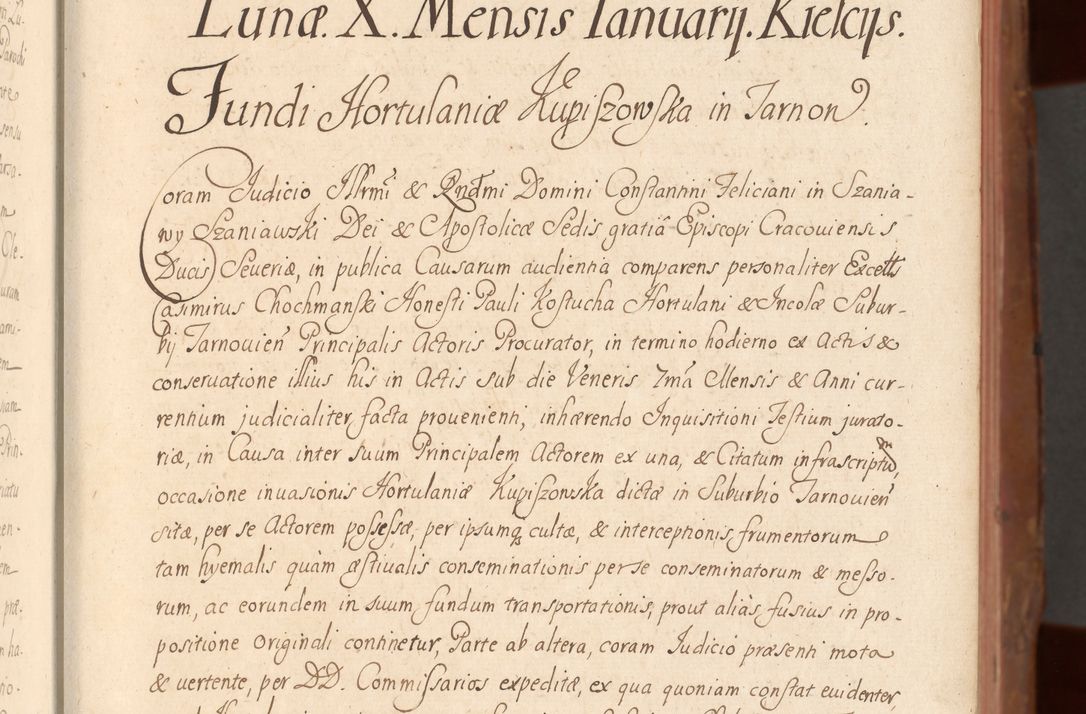 Lunæ. X. Mensis Ianuarij. Kielcijs.
Fundi Hortulaniæ Kupiszowska in Tarnon.
Coram Iudicio Illrmi & Rndmi Domini Constantini Feliciani in Szania-
wy Szaniawski Dei & Apostolicæ Sedis gratiâ Episcopi Cracouiensis
Ducis Seueriæ, in publica Causarum audientia comparens personaliter Excells
Casimirus Chochmanski Honesti Pauli Kostucha Hortulani & Incolæ Subur-
bij Tarnouien Principalis Actoris Procurator, in termino hodierno ex Actis &
conseruatione illius his in Actis sub die Veneris 7mâ Mensis & Anni cur-
rentium judicialiter facta prouenienti, inhærendo Inquisitioni Testium jurato-
riæ, in Causa inter suum Principalem Actorem ex una, & Citatum infrascriptum,
occasione inuasionis Hortulaniæ Kupiszowska dictæ in Suburbio Tarnouien
sitæ, per se Actorem possessæ, per ipsumq cultæ, & interceptionis frumentorum
tam hyemalis quàm æstiualis conseminationis per se conseminatorum & messo-
rum, ac eorundem in suum fundum transportationis, prout aliàs fusius in pro-
positione Originali continetur, Parte ab altera, coram Iudicio præsenti mota
& uertente, per DD. Commissarios expeditæ, ex qua quoniam constat euidenter